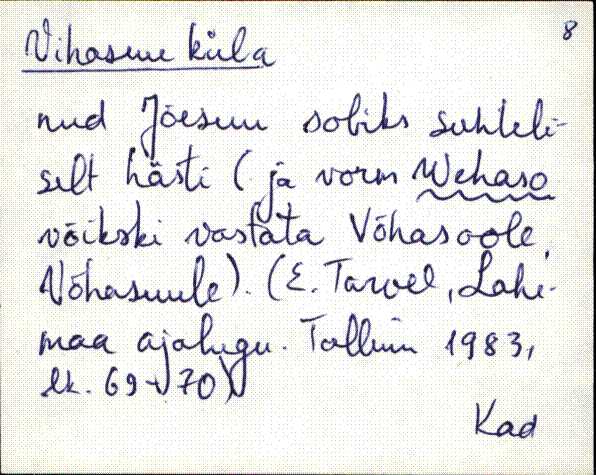 8
Vihasuu küla
nud Jõesuu sobiks suhteli-
selt hästi (ja vorm Wehaso
võikski vastata Võhasoole,
Võhasuule). (E. Tarvel, Lahe-
maa ajalugu. Tallinn 1983,
lk. 69-70)
Kad